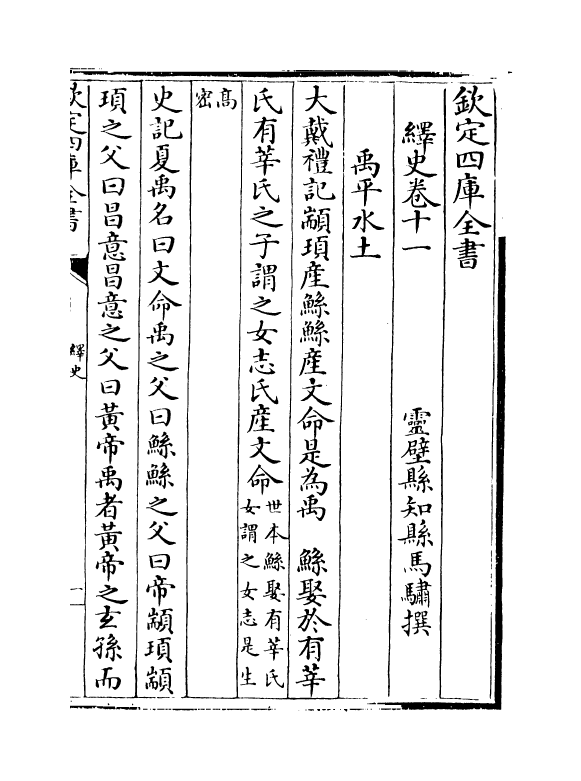 欽定四庫全書
繹史卷十一
靈壁縣知縣馬驌撰
禹平水土
大戴禮記顓頊産鯀鯀産文命是為禹　鯀娶於有莘
氏有莘氏之子謂之女志氏産文命
世本鯀娶有莘氏
女謂之女志是生
高
密
史記夏禹名曰文命禹之父曰鯀鯀之父曰帝顓頊顓
頊之父曰昌意昌意之父曰黃帝禹者黃帝之玄孫而
欽定四庫全書
繹史